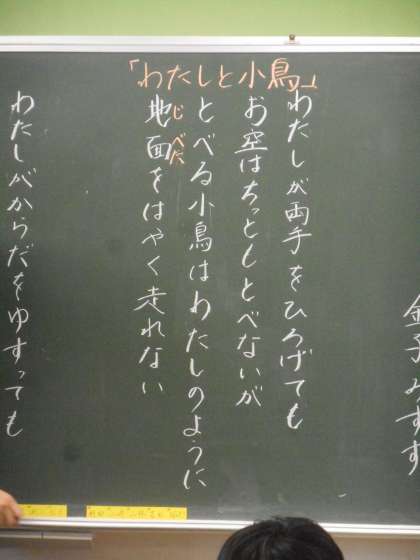 「わたしと小鳥」
金子みすゞ
わたしが両手をひろげても
お空はちっともとべないが
とべる小鳥はわたしのように
地面をはやく走れない
じべた
わたしがからだをゆすっても